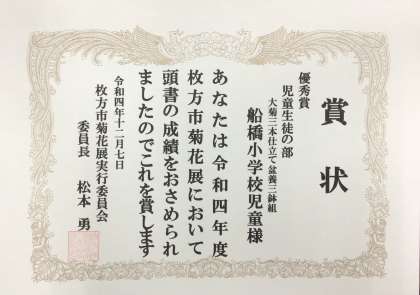 賞状
優秀賞
児童生徒の部
大菊三本仕立て盆養三鉢組
船橋小学校児童様
あなたは令和四年度
枚方市菊花展において
頭書の成績をおさめられ
ましたのでこれを賞します
令和四年十二月七日
枚方市菊花展実行委員会
委員長 松本勇